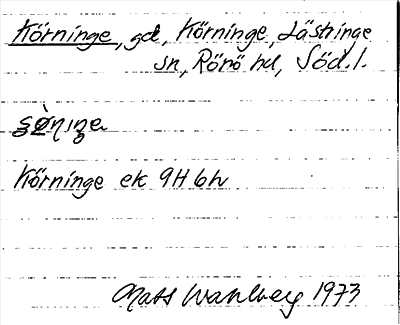 Körninge, gd, Körninge, Lästringe
sn, Rönö hd, Söd.l.
Körninge ek 9H 6h
Mats Wahlberg 1973